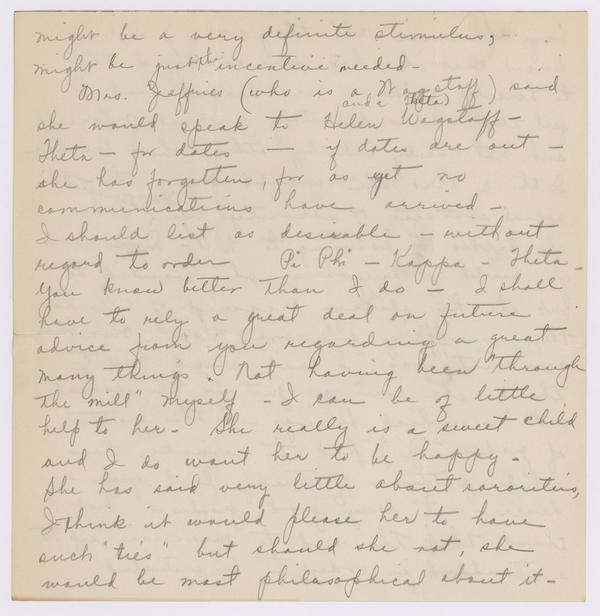 might be a very definite stimulus,
might be just the incentive needed -
Mrs. Jeffries (who is a Wagstaff and a Theta) said
she would speak to Helen Wagstaff -
Theta - for dates - if dates are out -
she has forgotten, for as yet no
communications have arrived -
I should list as desirable - without
regard to order Pi Phi - Kappa - Theta -
You know better than I do - I shall
have to rely a great deal on future
advice from you regarding a great
many things. Not having been "through
the mill" myself - I can be of little
help to her - She really is a sweet child
and I do want her to be happy -
She has said very little about sororities,
I think it would please her to have
such "ties" but should she not, she
would be most philosophical about it -